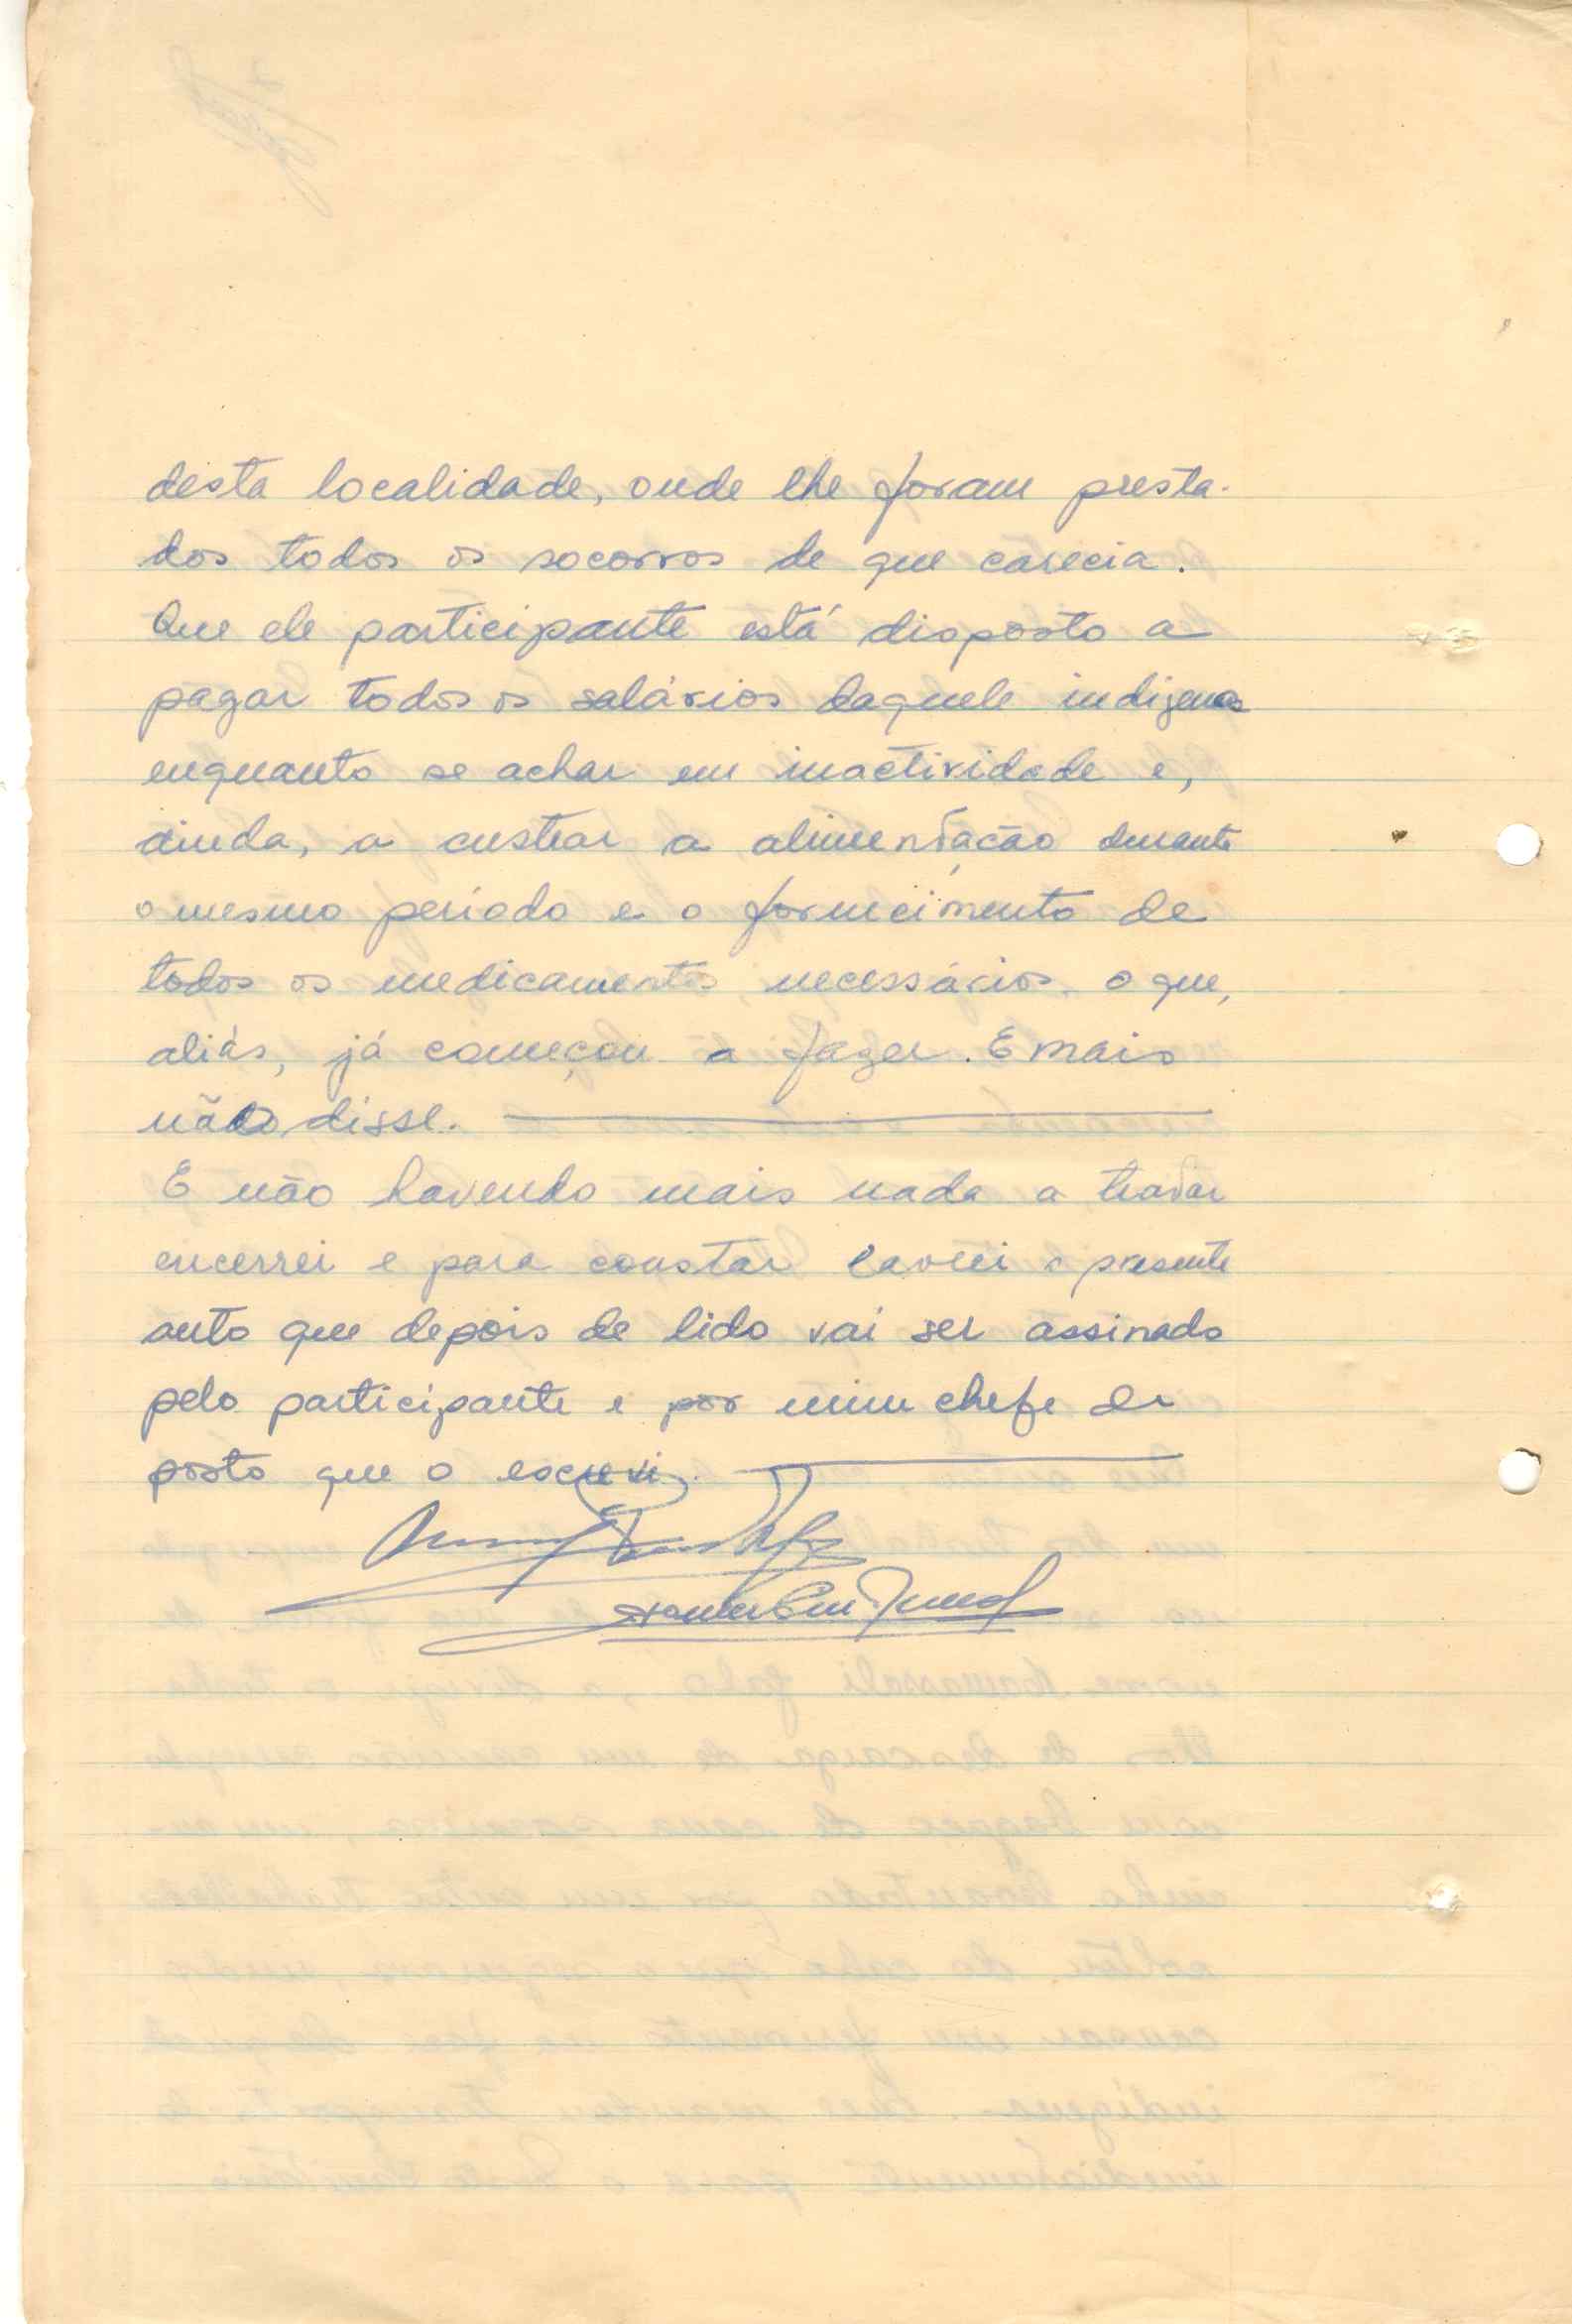 desta localidade, onde lhe foram presta-
dos todos os socorros de que carecia.
Que ele participante está disposto a
pagar todos os salários daquele indigena
enquanto se achar em inactividade e,
ainda, a custear a alimentação durante
o mesmo período e o fornecimento de
todos os medicamentos necessários, o que,
aliás, já começou a fazer. E mais
não disse.
E não havendo mais nada a tratar
encerrei e para constar lavrei o presente
auto que depois de lido vai ser assinado
pelo participante e por mim chefe de
posto que o escrevi.